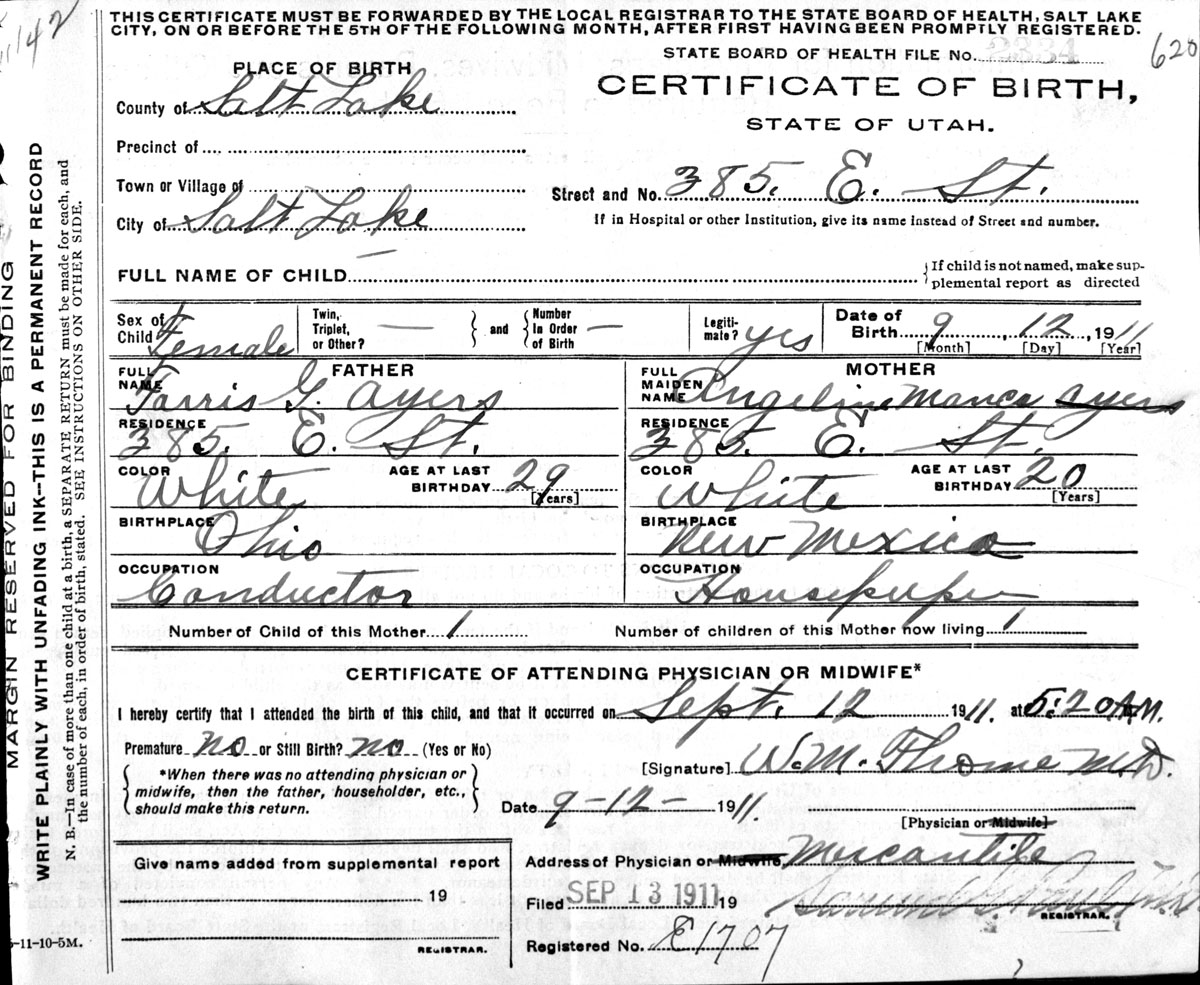 THIS CERTIFICATE MUST BE FORWARDED BY THE LOCAL REGISTRAR TO THE STATE BOARD OF HEALTH, SALT LAKE
CITY, ON OR BEFORE THE 5TH OF THE FOLLOWING MONTH, AFTER FIRST HAVING BEEN PROMPTLY REGISTERED.
142
STATE BOARD OF HEALTH FILE No. 2334
620
PLACE OF BIRTH
CERTIFICATE OF BIRTH,
STATE OF UTAH.
County of Salt Lake
Precinct of
Town or Village of
Street and No. 385. E. St.
City of Salt Lake
If in Hospital or other Institution, give its name instead of Street and number.
FULL NAME OF CHILD
If child is not named, make sup-
plemental report as directed
Sex of Child Female
Twin, Triplet, or Other? —
and
Number In Order of Birth —
Legiti-mate? yes
Date of Birth 9, 12, 1911
[Month] [Day] [Year]
FATHER
MOTHER
FULL NAME Farris G. Ayers
FULL MAIDEN NAME Angeline Ayers
RESIDENCE 385. E. St.
RESIDENCE 385 E. St.
COLOR White
AGE AT LAST BIRTHDAY 29 [Years]
COLOR White
AGE AT LAST BIRTHDAY 20 [Years]
BIRTHPLACE Ohio
BIRTHPLACE New Mexico
OCCUPATION Conductor
OCCUPATION Housekeeper
Number of Child of this Mother 1
Number of children of this Mother now living 1
CERTIFICATE OF ATTENDING PHYSICIAN OR MIDWIFE*
I hereby certify that I attended the birth of this child, and that it occurred on Sept. 12 1911. at 5:20 A.M.
Premature no or Still Birth? no (Yes or No)
[Signature] W. M. Thome M.D.
*When there was no attending physician or
midwife, then the father, householder, etc.,
should make this return.
Date 9-12- 1911.
[Physician or Midwife]
Give name added from supplemental report
Address of Physician or Midwife, Mercantile
19
Filed SEP 13 1911 19
REGISTRAR.
REGISTRAR.
Registered No. E1707
-11-10-5M.
MARGIN RESERVED FOR BINDING
WRITE PLAINLY WITH UNFADING INK--THIS IS A PERMANENT RECORD
N. B.—In case of more than one child at a birth, a SEPARATE RETURN must be made for each, and
the number of each, in order of birth, stated. SEE INSTRUCTIONS ON OTHER SIDE.